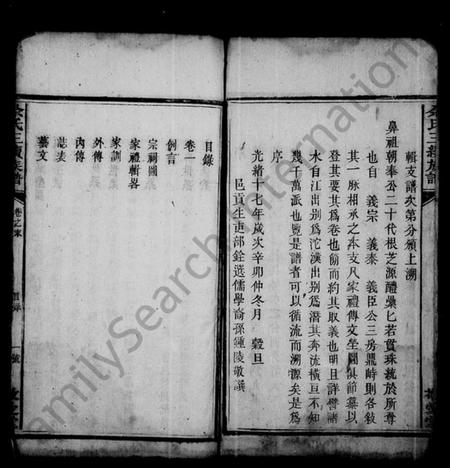 輯支譜次第分頒上溯
鼻祖朝奉公二十代根芝源醴纍匕若貫珠統於所尊
也自　義宗　義泰　義臣公三房鼎峙則各敘
其一脈相承之本支凡家禮傳文坐圖俱節纂以
登其要其為卷也簡而約其取義也明且詳譬諸
水自江出別為沱漢出別為潛其奔流橫亘不知
幾千萬派也覽是譜者可以循流而溯源矣是為
序
光緒十七年歲次辛卯仲冬月　穀旦
邑貢生吏部銓選儒學裔孫鍾陵敬譔
余氏三續族譜
目錄
卷一
例言
宗祠圖
家禮輯畧
家訓
外傳
內傳
誌表
藝文
余氏三續族譜
卷之末
目錄
一號
FamilySearch International